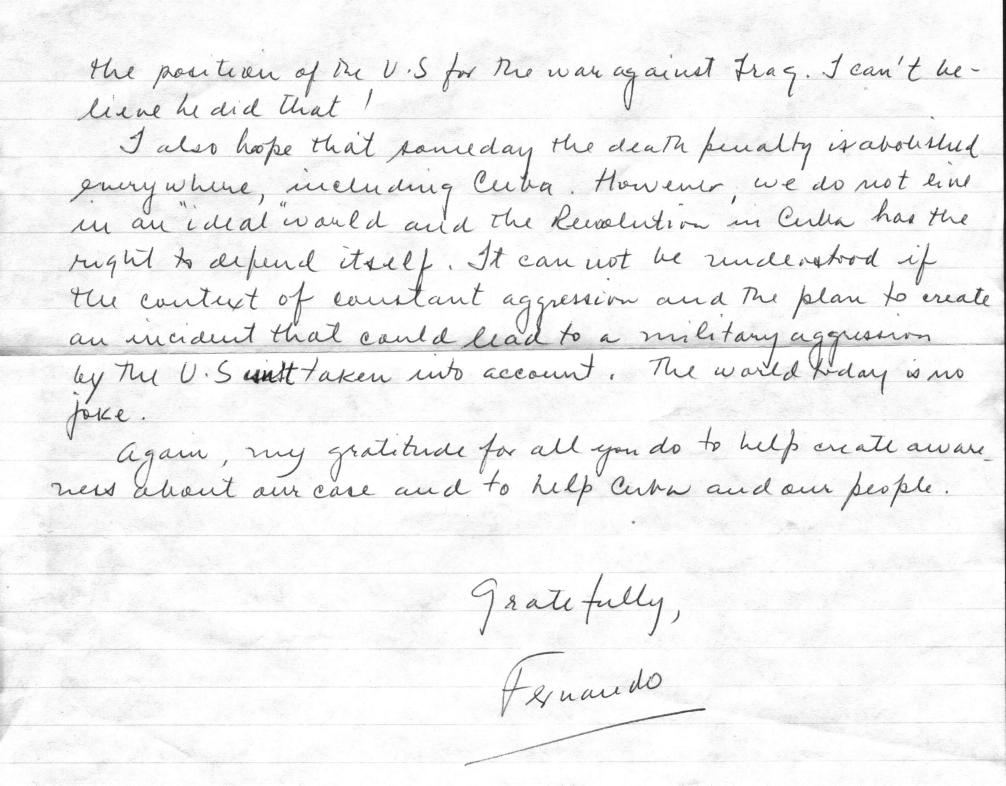 the position of the U.S for the war against Iraq. I can't be-
lieve he did that!
I also hope that someday the death penalty is abolished
everywhere, including Cuba. However, we do not live
in an "ideal" world and the Revolution in Cuba has the
right to defend itself. It can not be understood if
the context of constant aggression and the plan to create
an incident that could lead to a military aggression
by the U.S isn't taken into account. The world today is no
joke.
Again, my gratitude for all you do to help create aware-
ness about our case and to help Cuba and our people.
Gratefully,
Fernando